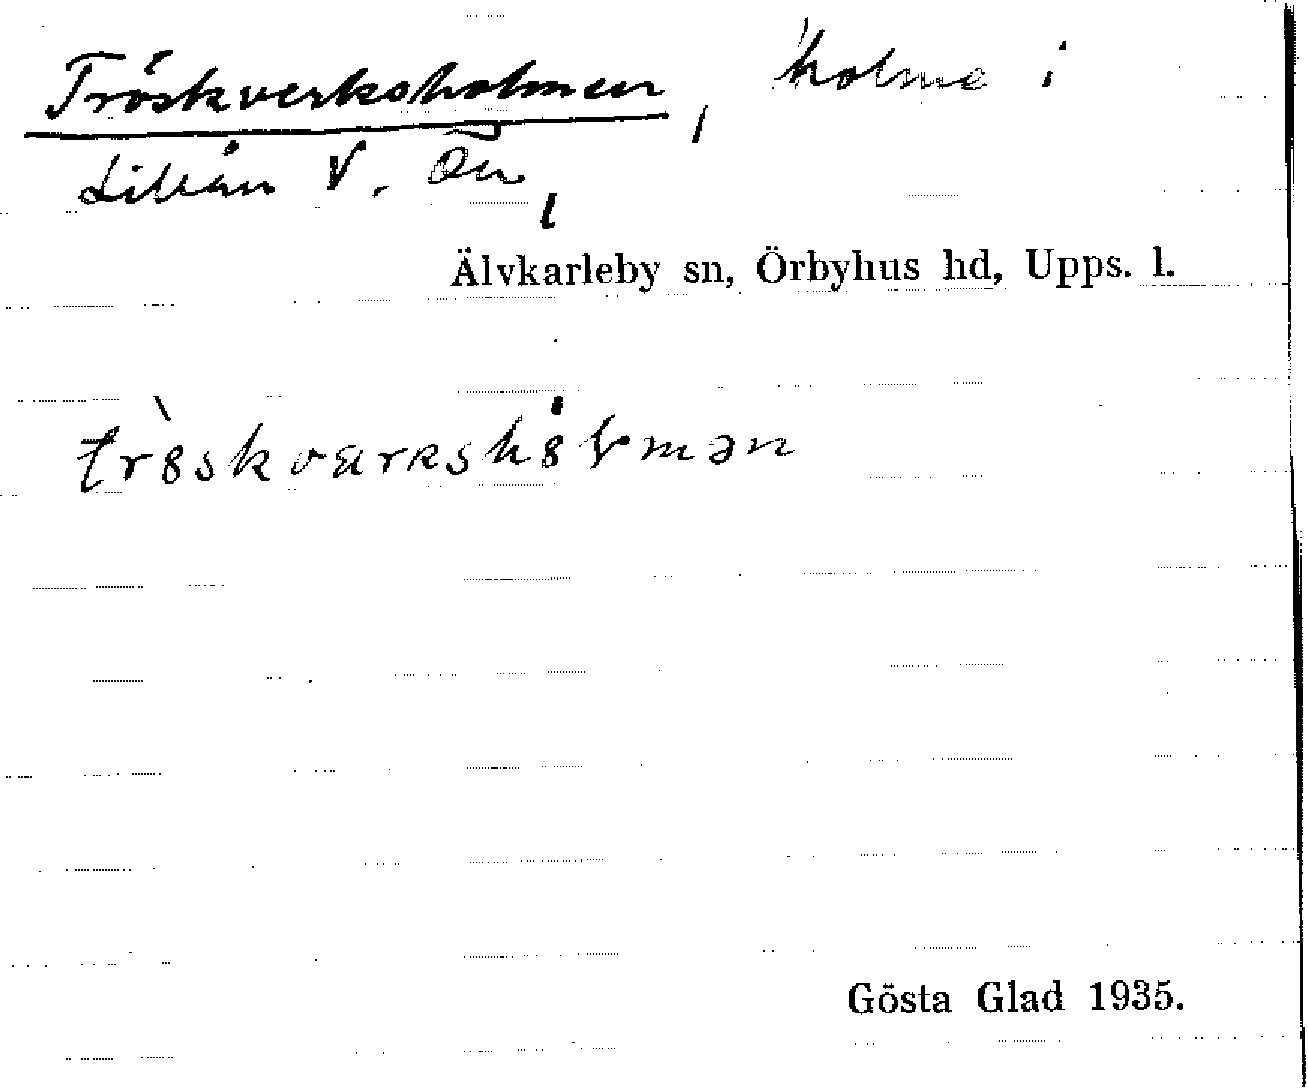 Tröskverksholmen, holme i
Lillån V. Ön,
Älvkarleby sn, Örbyhus hd, Upps. l.
Gösta Glad 1935.